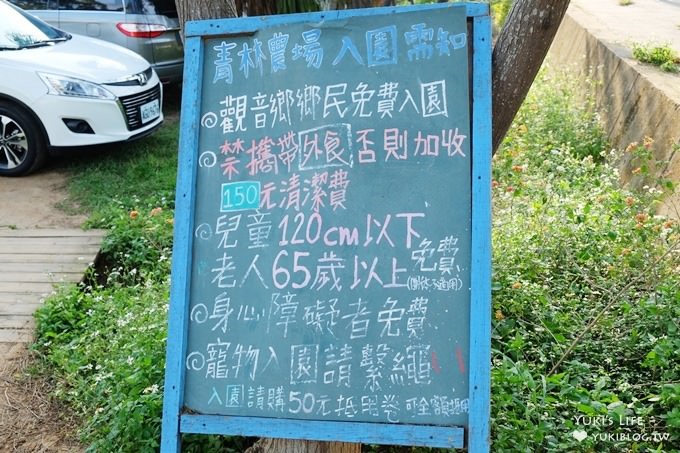 青林農場入園需知
觀音鄉鄉民免費入園
禁攜帶外食否則加收
150元清潔費
兒童120cm以下
老人65歲以上免費
身心障礙者免費
寵物入園請繫繩!!
入園請購50元抵用卷可全額抵用
YUKI's LiFE
YUKIBLOG.TW